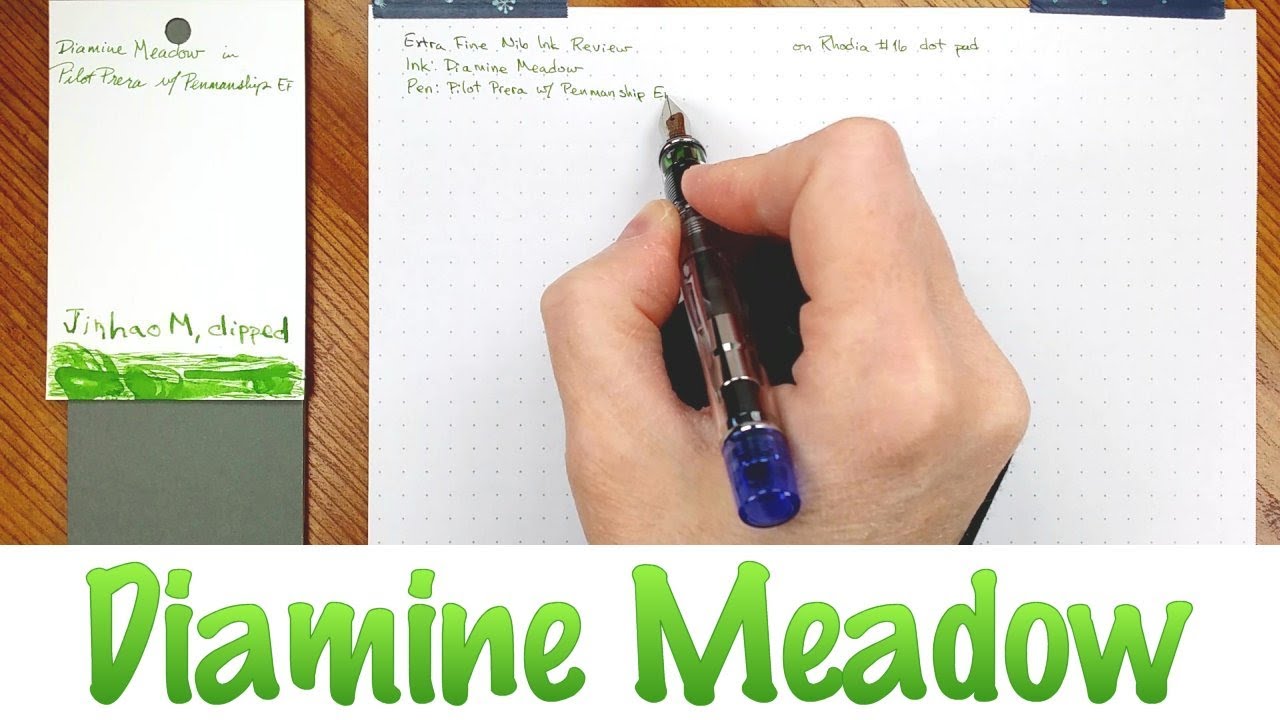 Diamine Meadow in
Pilot Prera w/ Penmanship EF
Jinhao M, clipped
Extra Fine Nib Ink Review
on Rhodia #16 dot pad
Ink: Diamine Meadow
Pen: Pilot Prera w/ Penmanship E
Diamine Meadow